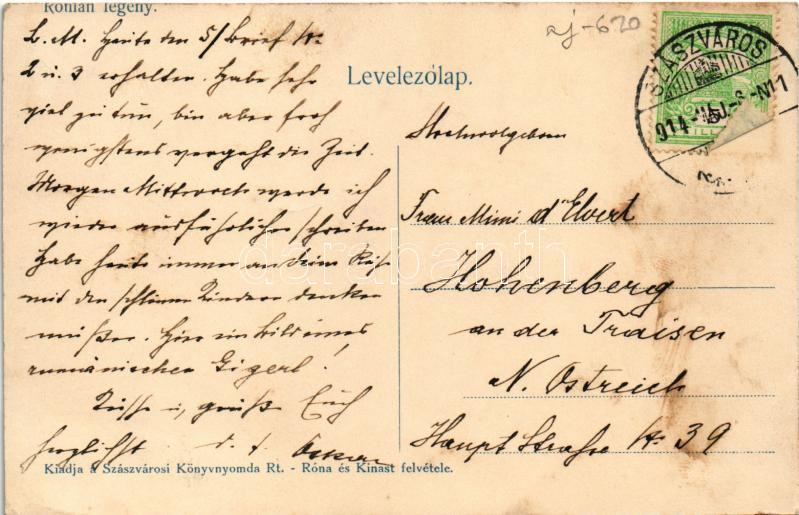 Román legény.
aj-620
L. M. Heute den 5/ Brief Nr.
2 u. 3 erhalten. Habe sehr
viel zu tun, bin aber froh
wenigstens vergeht die Zeit.
Morgen Mittwoch werde ich
wieder ausführlicher schreiben
Habe heute immer an deine Reise
mit den schlimmen Kindern denken
müssen. Hier ein Bild eines
rumänischen Gigerl!
Küsse u. grüße Euch
herzlichst d. t. Oskar
Levelezőlap.
SZÁSZVÁROS
914
FILL
Hochwohlgeboren
Frau Mimi d'Elvert
Hohenberg
an der Traisen
N. Östreich
Haupt Strasse Nr. 39
Kiadja a Szászvárosi Könyvnyomda Rt. - Róna és Kinast felvétele.
darabanth